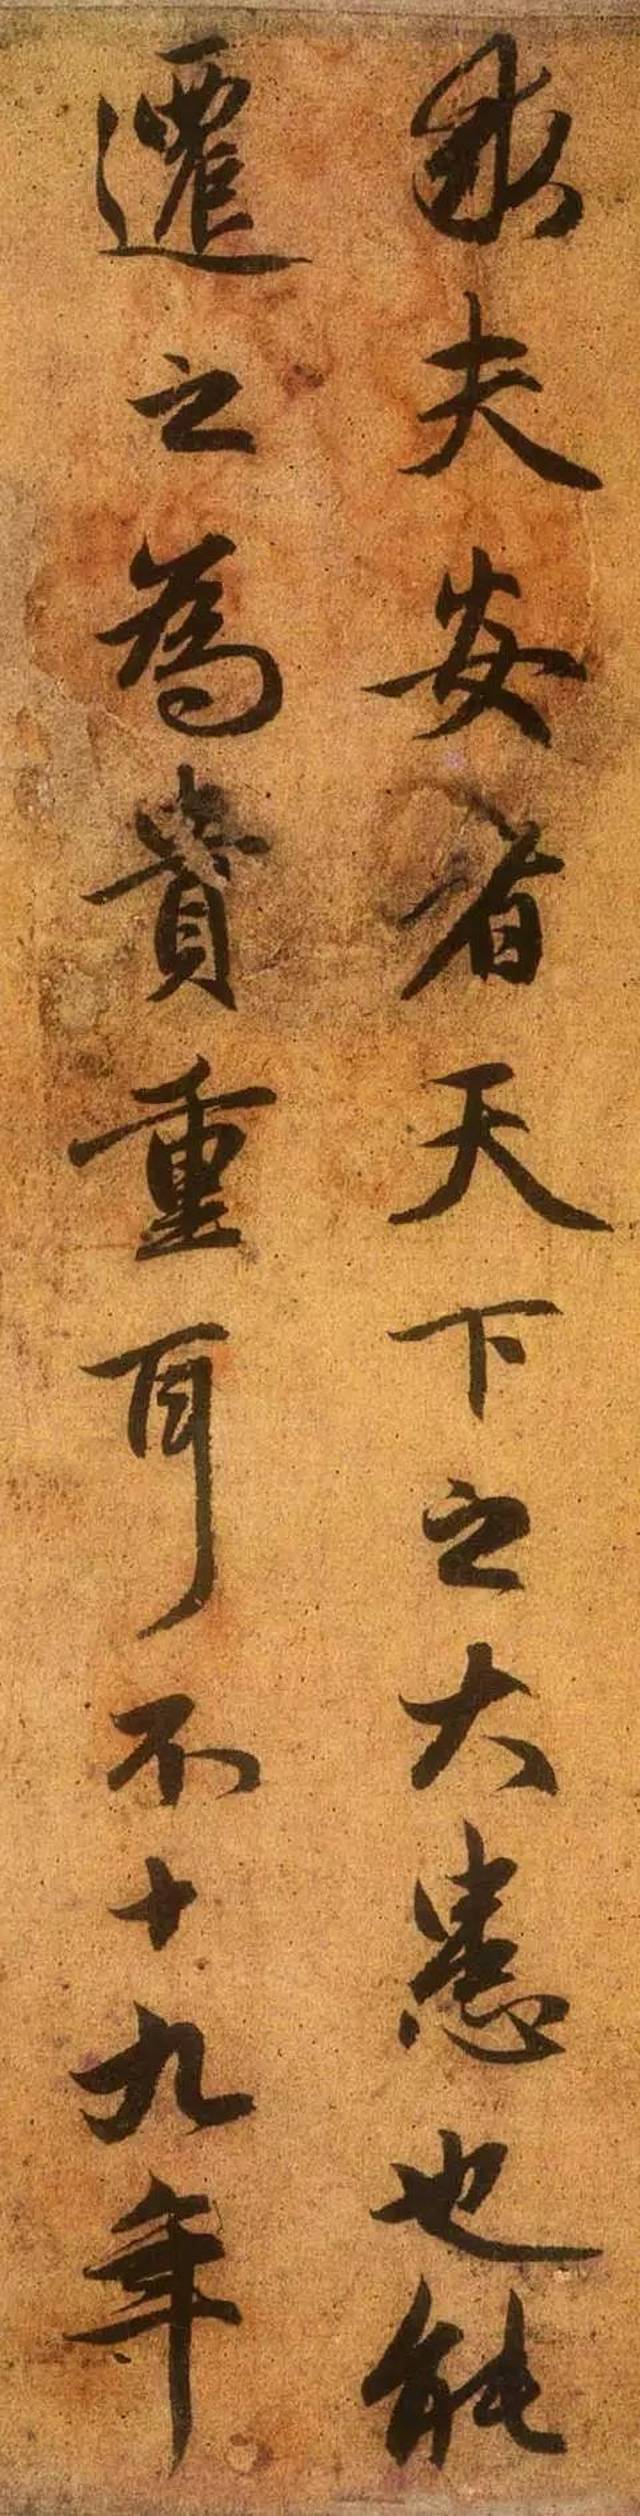 故夫安者天下之大患也能
遷之為貴重耳不十九年